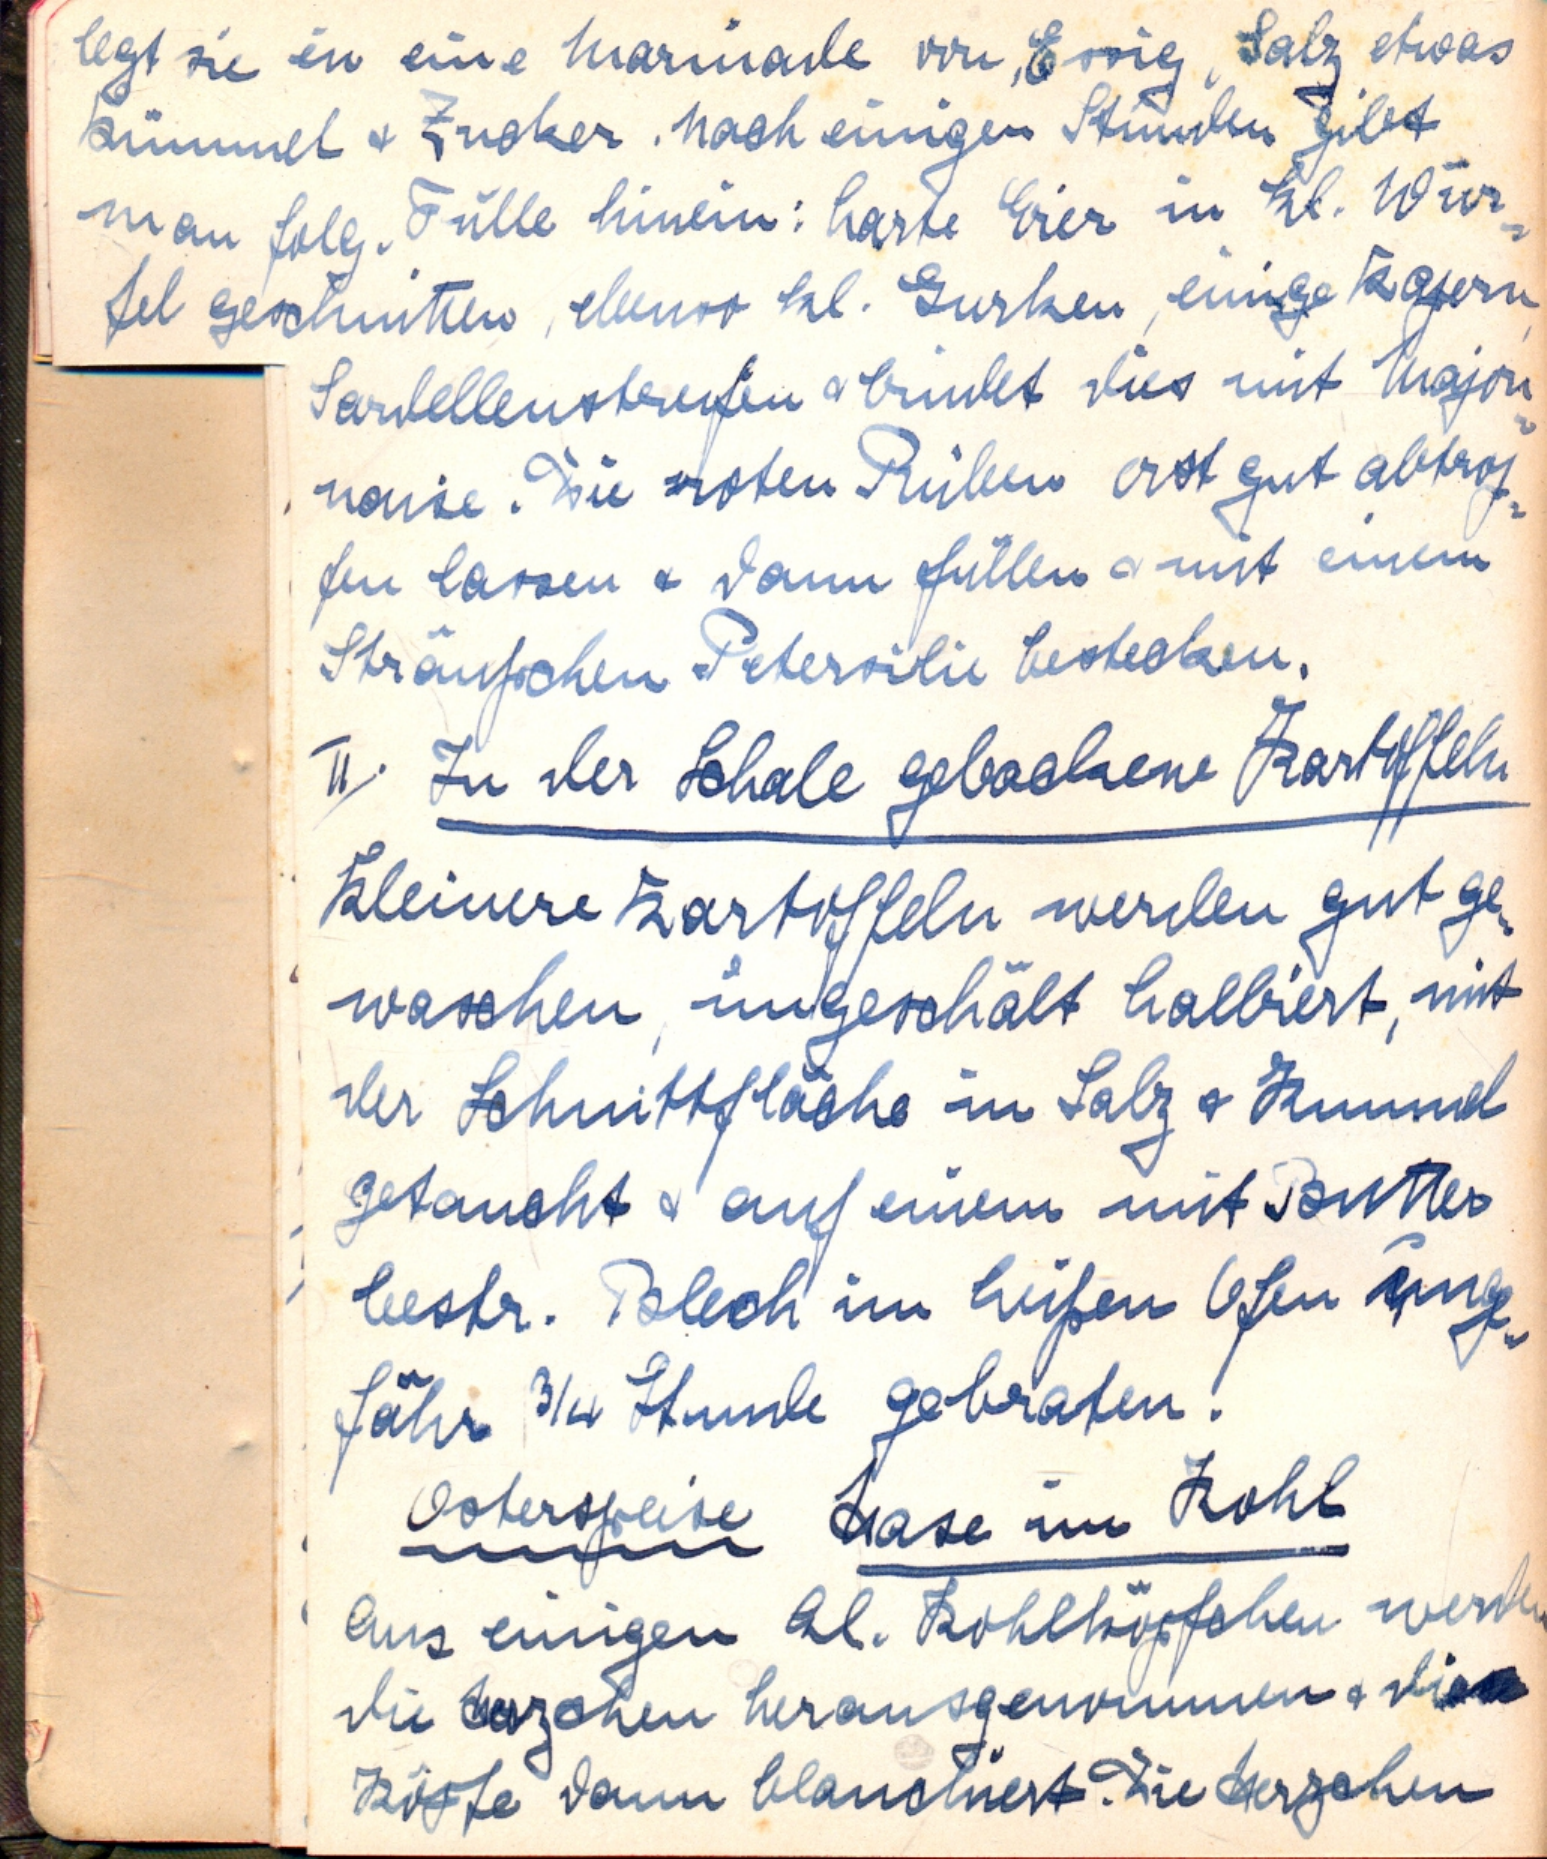 legt sie in eine Marinade von Essig, Salz etwas
Kümmel & Zucker. Nach einigen Stunden gibt
man folg. Fülle hinein: harte Eier in kl. Wür-
fel geschnitten, ebenso kl. Gurken, einige Kapern,
Sardellenstreifen & bindet dies mit Majon-
naise. Die roten Rüben erst gut abtrop-
fen lassen & dann füllen & mit einem
Sträußchen Petersilie bestecken.
II. In der Schale gebackene Kartoffeln
Kleinere Kartoffeln werden gut ge-
waschen, ungeschält halbiert, mit
der Schnittfläche in Salz & Kümmel
getaucht & auf einem mit Butter
bestr. Blech im heißen Ofen unge-
fähr 3/4 Stunde gebraten.
Osterspeise Hase im Kohl
Aus einigen kl. Kohlköpfchen werden
die Herzchen herausgenommen & die
Köpfe dann blanchiert. Die Herzchen